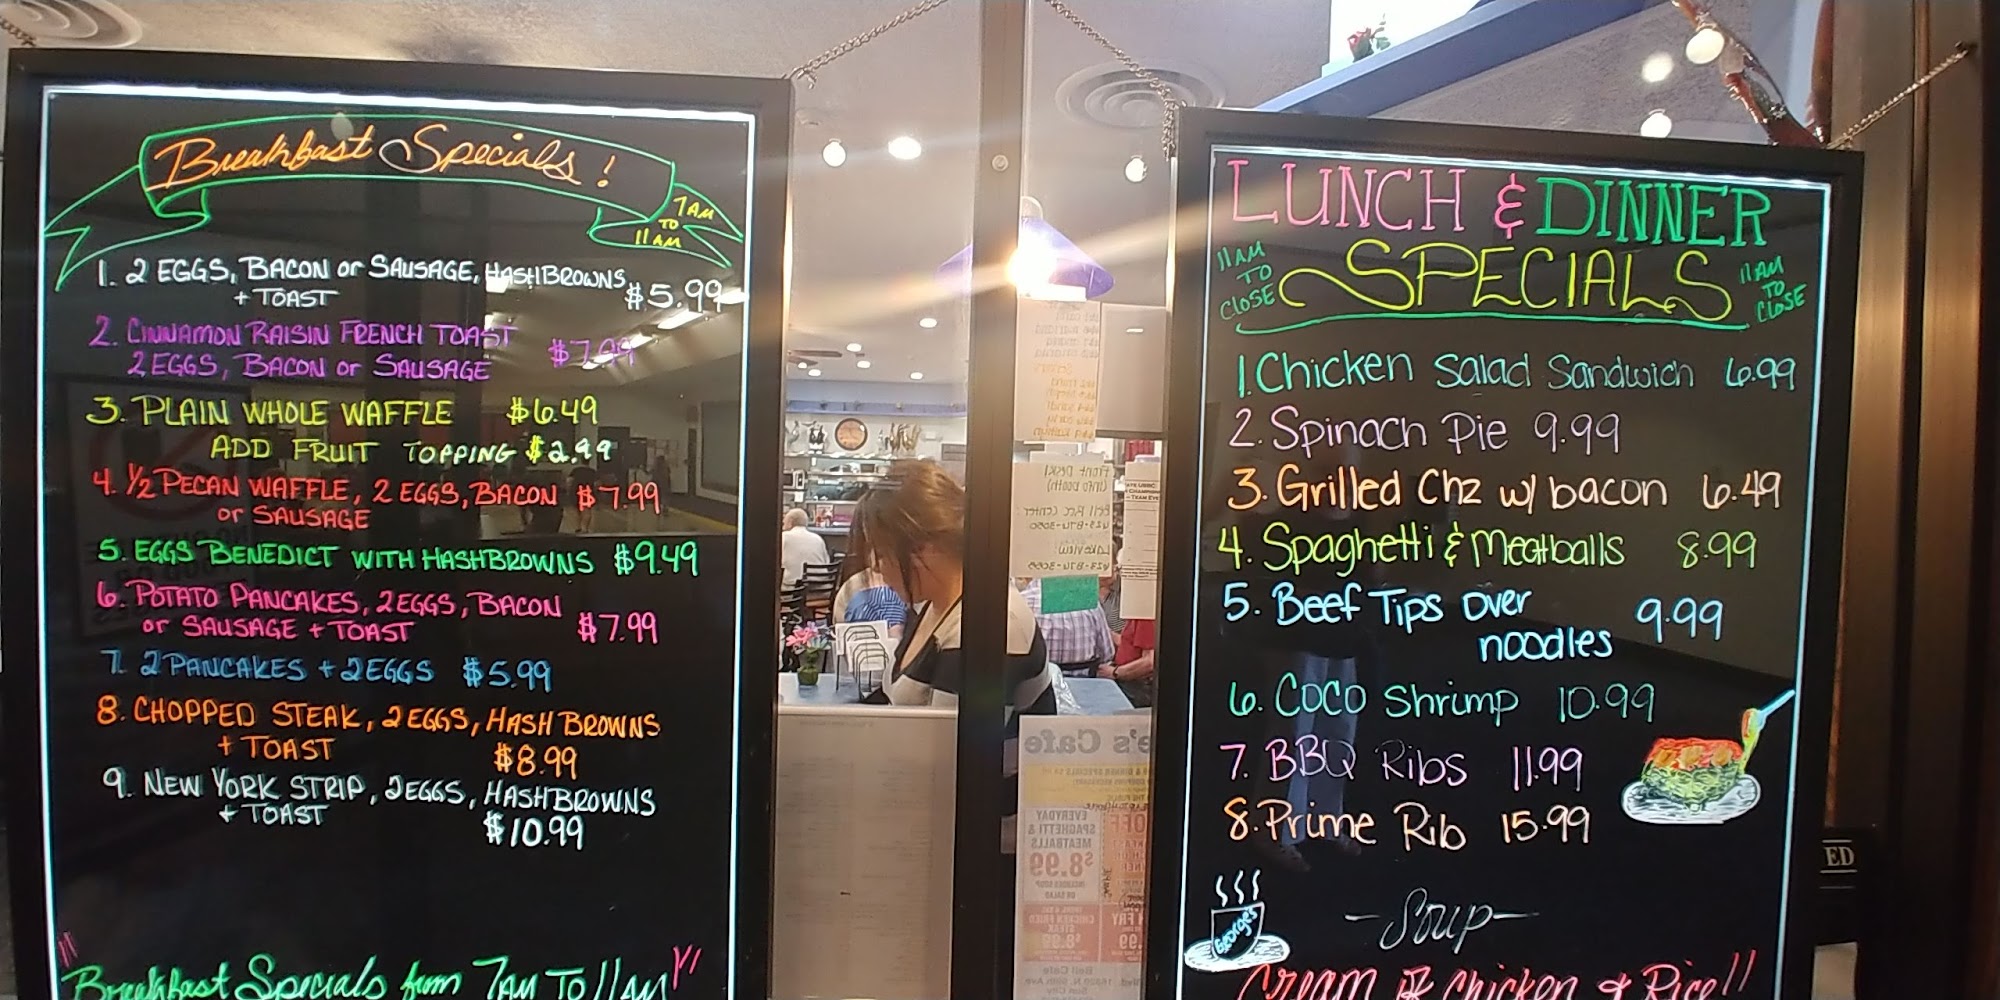 Breakfast Specials!
7AM
TO
11AM
1. 2 EGGS, BACON or SAUSAGE, HASHBROWNS
+ TOAST $5.99
2. CINNAMON RAISIN FRENCH TOAST
2 EGGS, BACON or SAUSAGE $7.99
3. PLAIN WHOLE WAFFLE $6.49
ADD FRUIT TOPPING $2.99
4. 1/2 PECAN WAFFLE, 2 EGGS, BACON $7.99
or SAUSAGE
5. EGGS BENEDICT WITH HASHBROWNS $9.49
6. POTATO PANCAKES, 2 EGGS, BACON
or SAUSAGE + TOAST $7.99
7. 2 PANCAKES + 2 EGGS $5.99
8. CHOPPED STEAK, 2 EGGS, HASH BROWNS
+ TOAST $8.99
9. NEW YORK STRIP, 2 EGGS, HASHBROWNS
+ TOAST $10.99
Breakfast Specials from 7AM TO 11AM
LUNCH & DINNER
SPECIALS
11AM
TO
CLOSE
11AM
TO
CLOSE
1. Chicken Salad Sandwich 6.99
2. Spinach Pie 9.99
3. Grilled Chz w/ bacon 6.49
4. Spaghetti & Meatballs 8.99
5. Beef Tips over
noodles 9.99
6. Coco Shrimp 10.99
7. BBQ Ribs 11.99
8. Prime Rib 15.99
Georges
-Soup-
Cream of Chicken & Rice!!
ED
Front Desk/
(info booth)
Bell Rec Center:
623-876-3050
Lakeview:
e's Cafe
EVERYDAY
SPAGHETTI &
MEATBALLS
$8.99
INCLUDES SOUP
OR SALAD
CHICKEN FRIED
STEAK
$8.99
Bell Cafe
Sun City